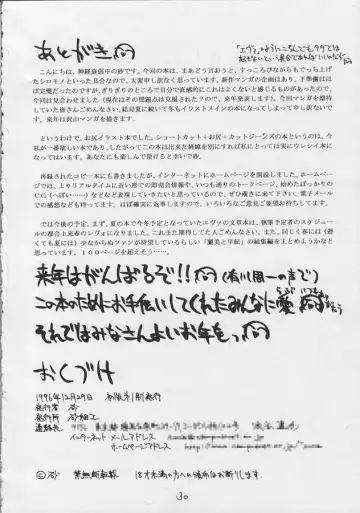 あとがき
「エヴァ」のように
こんにちは、神経衰弱中の砂です。今回の本は、まあどう言おうと、すっころびながらもでっち上げ
たシロモノといった具合なので、大変申し訳なく思っています。新作マンガの企画はあり、下準備はほ
ぼ完璧だったのですが、ぎりぎりのところで自分で直感的にこれはよくないと感じるものがあったので、
今回は見合わせました(現在はその問題点は克服されたので、来年発表します)。今回マンガを期待
していた皆さんごめんなさい。さらに、夏に続いて冬もイラストメインの本になってしまって申し訳ないで
す。来年は沢山マンガを描きます。
というわけで、お尻イラスト本でした。ショートカット+お尻+カットジーンズの本というのは、今
私が一番欲しい本であり、したがってこの本は出来た経緯を別にすれば私にとっては実にウレシイ本に
なってはいます。あなたにも楽しんで頂けると幸いで砂。
斜線されたコピー本にも書きましたが、インターネットにホームページを開設しました。ホームペー
ジでは、よりリアルタイムに近い形での即売会情報や、いつも通りのトークページ、始めたばっかりの
CG(へぼい……)などなど表現していきたいと思っているので、ぜひ覗きに来て下さい。電子メール
での感想なども待ってます。ほぼ確実に返事しますので、いろいろなご意見ご要望お待ちしてます。
では今後の予定。まず、夏の本で今冬予定となっていたエヴァの文章本は、執筆予定者のスケジュー
ルの都合上来春のレヴォになりました。これまた期待してた人ごめんなさい。また、同じく春には(遅
くても夏には)少なからぬファンが待望しているらしい「麗美と早紀」の総集編をまとめようかなと
思っています。100ページを超えそう……
来年はがんばるぞ!!
この本のためにお手伝いしてくれたみんなに愛
それではみなさんよいお年をっ
おくづけ
1996年12月29日 初版第1刷発行
発行者 砂
発行所 砂細工
連絡先
インターネット メールアドレス
ホームページアドレス
©砂 禁無断転載 18才未満の方への頒布はお断りします。
30